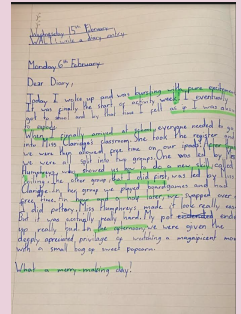 Wednesday 15th February
WALT: write a diary entry
Monday 6th February
Dear Diary,
Today I woke up and was bursting with pure excitement
It was finally the start of activity week. I eventually
got to and by that time I felt as if I was about
to explode.
When I finally arrived at school, everyone needed to go
into Miss Claridges classroom. She took the register and
we were then allowed free time on our After
we were all split into two groups. One was led by
Humphreys, was showed how to do a new skill called
. The other group, that I did first, was led by Miss
Claridge. In her group we played boardgames and had
free time. an hour and a half later, we swapped over and
I did pottery. Miss Humphreys made it look really easy
but it was actually really hard. My pot ended
up really bad. In the afternoon, we were given the
deeply appreciated privilege of watching a magnificent movie
with a small bag of sweet popcorn.
What a merry-making day!